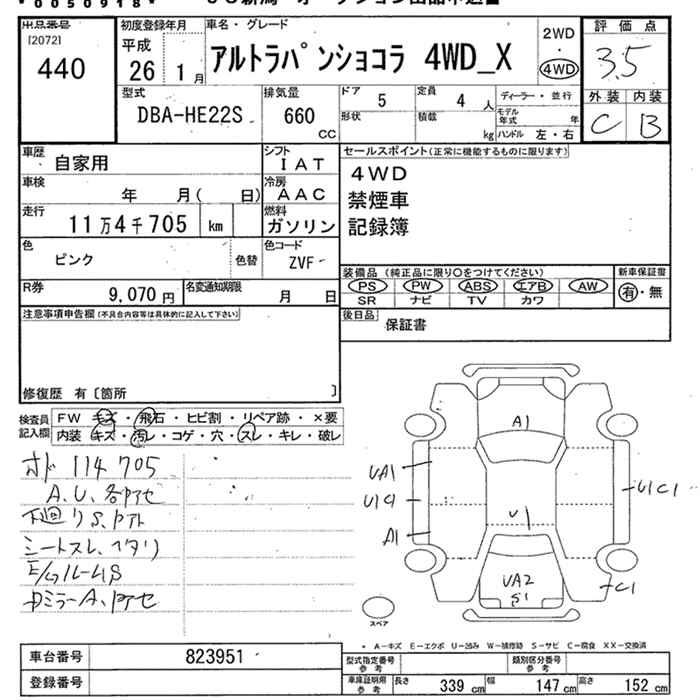 *0050918*
出品番号
[2072]
440
初度登録年月
平成
26 1月
車名・グレード
アルトラパンショコラ 4WD_X
2WD
・
4WD
評価点
3.5
外装 内装
C B
型式
DBA-HE22S
排気量
660
CC
ドア 5
定員 4 人
形状
積載 kg
ディーラー・並行
モデル年式 年
ハンドル 左・右
車歴 自家用
シフト IAT
車検 年 月( 日)
冷房 AAC
走行 11万4千705 km
燃料 ガソリン
色 ピンク
色替
色コード ZVF
R券 9,070円
名変通知期限 月 日
セールスポイント(正常に機能するものに限ります)
4WD
禁煙車
記録簿
装備品(純正品に限り○をつけてください)
PS PW ABS エアB AW
SR ナビ TV カワ
新車保証書
有・無
後日品 保証書
注意事項申告欄(不具合内容等は具体的に記入して下さい)
修復歴 有〔箇所 〕
検査員記入欄
FW キズ・飛石・ヒビ割・リペア跡・×要
内装 キズ・汚レ・コゲ・穴・スレ・キレ・破レ
オド 114705
A.U、各アセ
下廻りS、アト
シートスレ、ヘタリ
E/gルームS
ドミラーA、アセ
A1
UA1
U1C1
A1
U1
U1C1
UA2
S1
C1
スペア
* A-キズ E-エクボ U-凹み W-補修跡 S-サビ C-腐食 XX-交換済
車台番号 823951
登録番号
型式指定番号 参考
類別区分番号 参考
車庫証明用参考 長さ 339 cm 幅 147 cm 高さ 152 cm